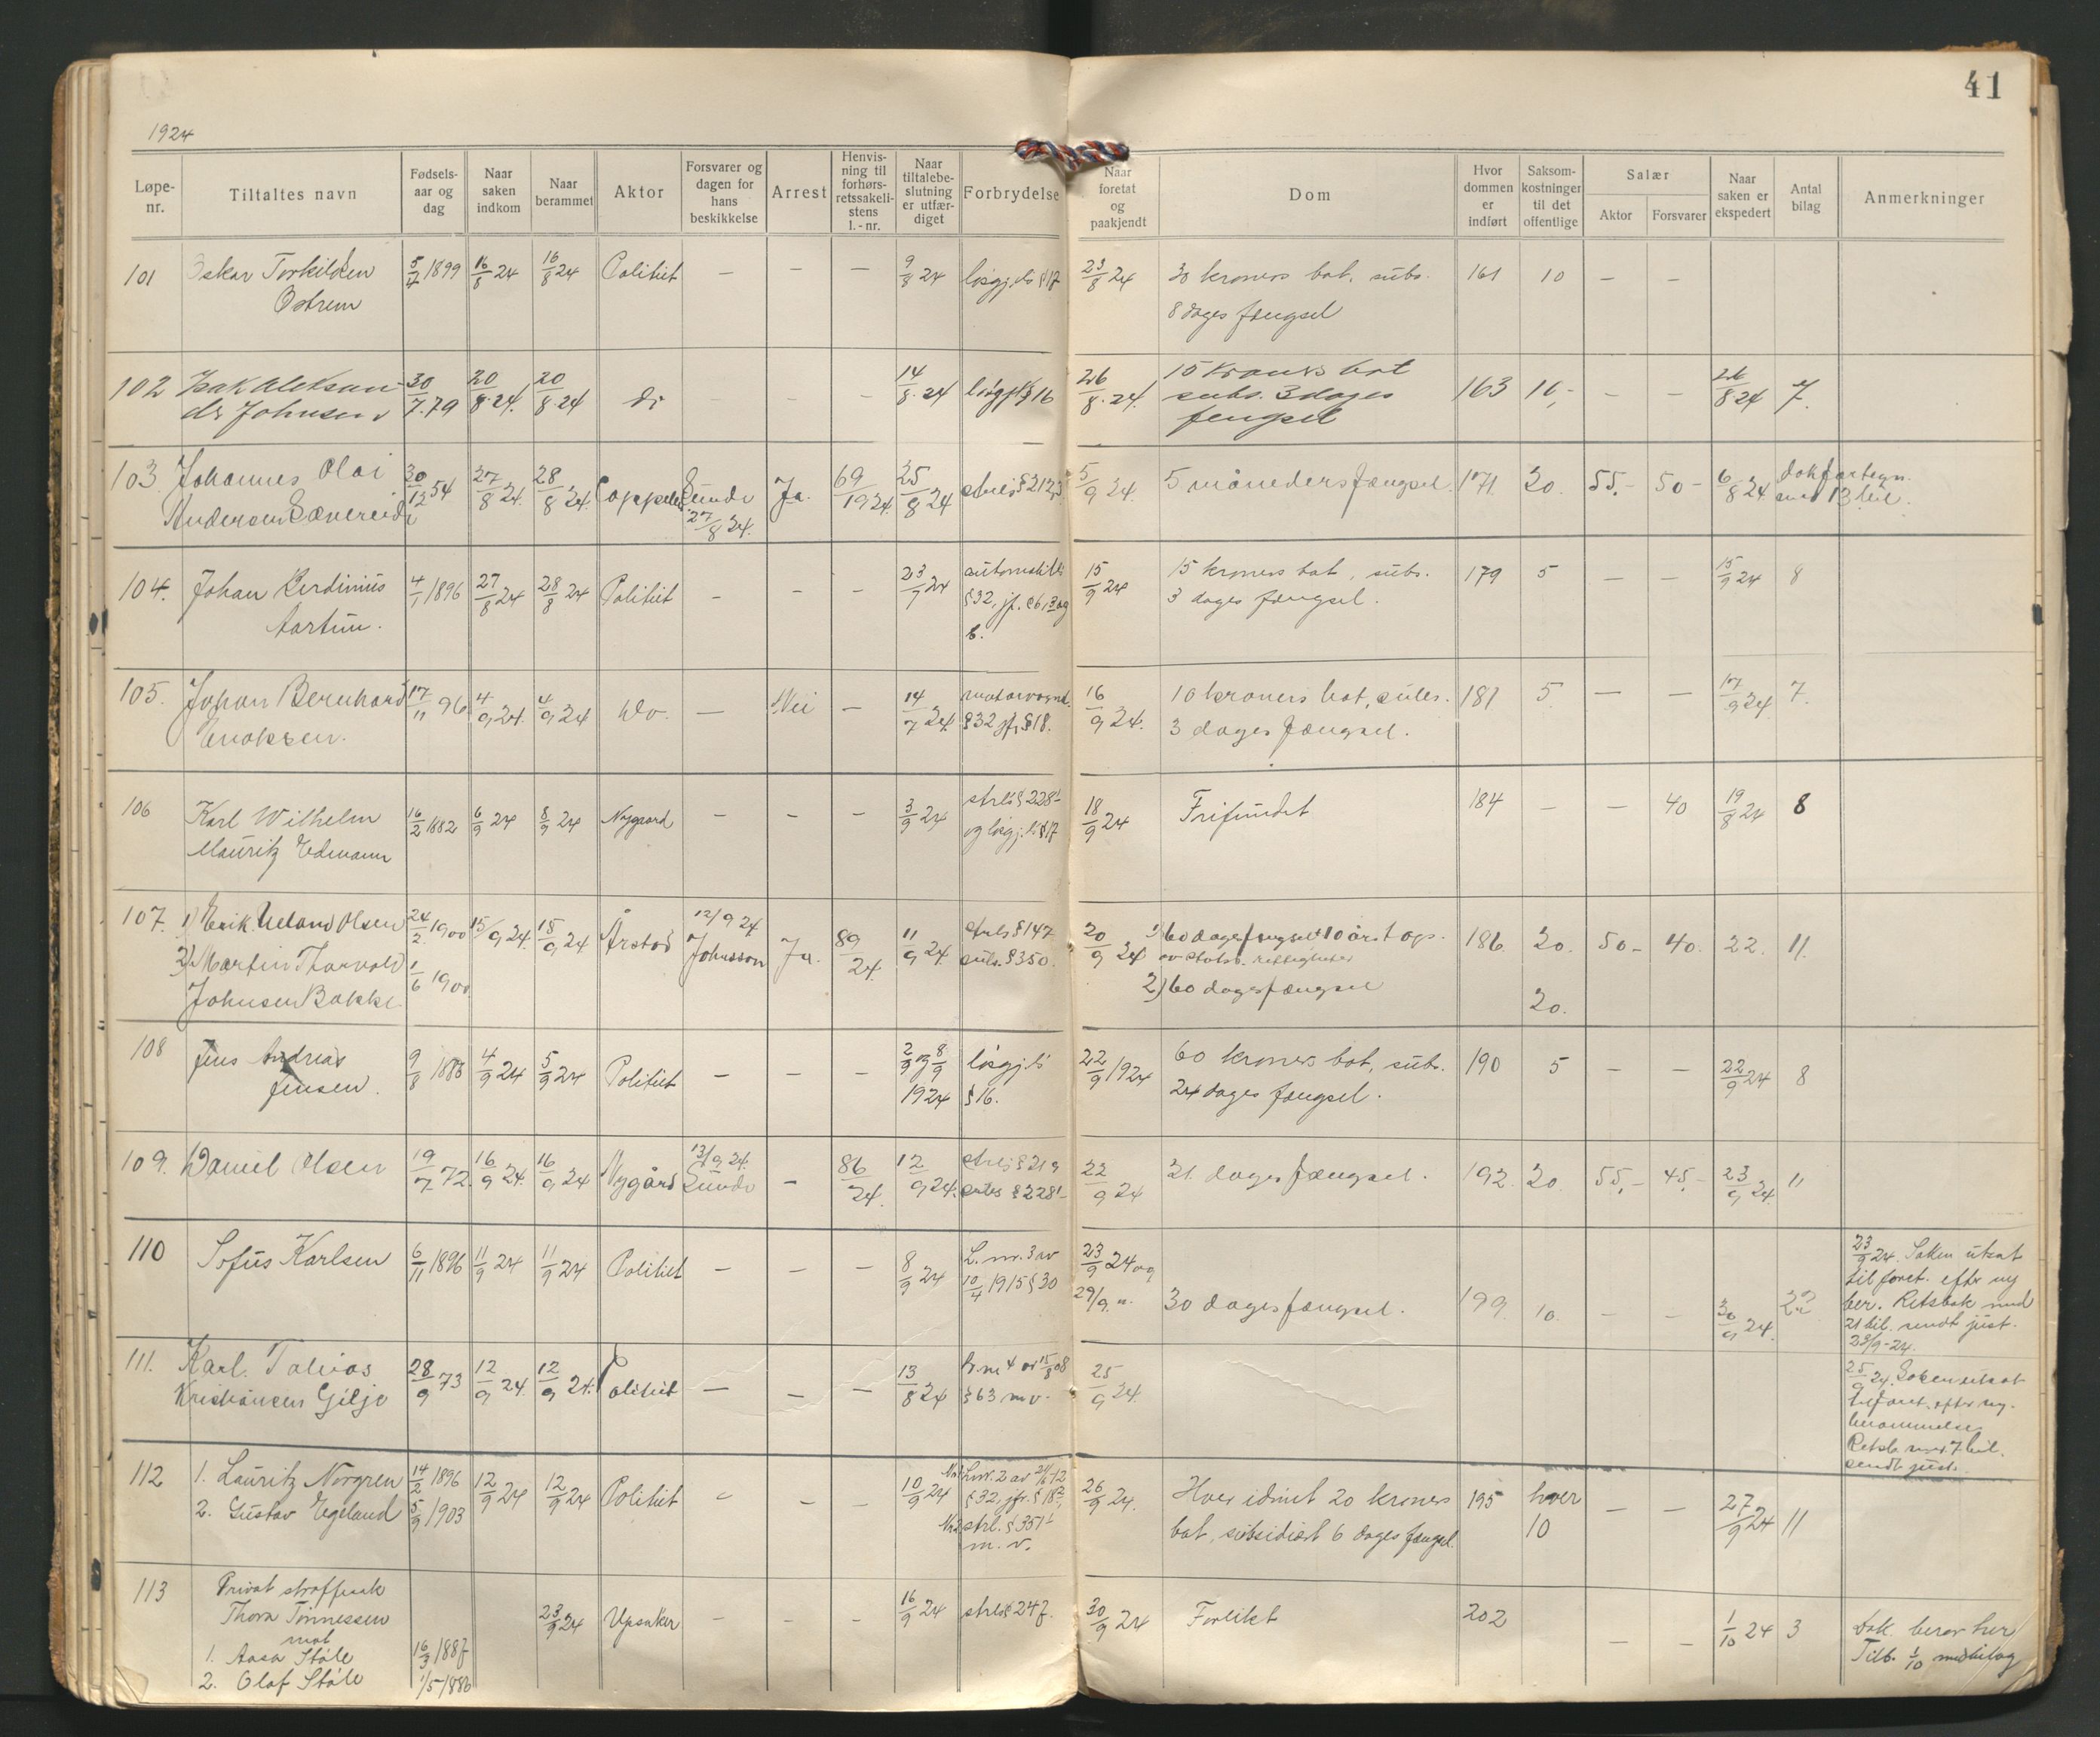 41
1924
Løpe-nr. Tiltaltes navn Fødselsaar og dag Naar saken indkom Naar berammet Aktor Forsvarer og dagen for hans beskikkelse Arrest Henvisning til forhørsretssakelistens l.-nr. Naar tiltalebeslutning er utfærdiget Forbrydelse Naar foretat og paakjendt Dom Hvor dommen er indført Saksomkostninger til det offentlige Salær Aktor Forsvarer Naar saken er ekspedert Antal bilag Anmerkninger
101 Oskar Torkildsen 5/4 1899 16/8 24 16/8 24 Politiet — — — 9/8 24 løsgj.ls §17 23/8 24 30 kroners bot, subs. 161 10 — —
Østrem 8 dages fængsel
102 Isak Aleksan- 30/7.79 20/8.24. 20/8.24 do — — — 14/8.24 løsgjl § 16 26/8.24. 10 kroners bot 163 10,- — — 26/8 24 7.
der Johnsen subs. 3 dages
fengsel
103. Johannes Olai 30/12 54 27/8 24. 28/8 24. Cappelen Sunde Ja. 69/1924. 25/8 24 strls § 212,3 5/9 24. 5 måneders fængsel. 171. 20. 55,- 50- 6/8 24 dokfortegn.
Andersen Sævereide 27/8 24. med 13 bil.
104. Johan Berdinius 4/1 1896 27/8 24 28/8 24 Politiet — — — 23/7 24 automobills 15/9 24 15 kroners bot, subs. 179 5 — — 15/9 24 8
Aartun. §32, jf. §6, 3 og 3 dages fængsel.
6.
105. Johan Bernhard 17/11 96 4/9 24. 4/9 24 Do. — Nei — 14/7 24. motorvognl. 16/9 24. 10 kroners bot, subs. 181 5. — — 17/9 24 7.
Enoksen. §32 jfr §18. 3 dages fængsel.
106 Karl Wilhelm 16/2 1882 6/9 24 8/9 24 Nygaard — — — 3/9 24 strls § 228¹ 18/9 24 Frifundet 184 — — 40 19/8 24 8
Mauritz Edmann og løsgj.ls §17
107. 1) Erik Ueland Olsen 24/2 1900 15/9 24. 15/9 24. Årstad 12/9 24 Ja. 89/24. 11/9 24. strls § 147 20/9 24 1) 60 dages fængsel + 10 års tap. 186. 20. 50- 40. 22. 11.
2) Martin Thorvald 1/6 1900 Johnsson subs. §350. av statsb. rettigheter
Johnsen Bakke 2) 60 dages fængsel 20.
108 Jens Andreas 9/8 1883 4/9 24 5/9 24 Politiet — — — 2/9 og 8/9 løsgj.ls 22/9 1924 60 kroners bot, subs. 190 5 — — 22/9 24 8
Jensen. 1924 §16. 24 dages fængsel.
109. Daniel Olsen 19/7 72. 16/9 24. 16/9 24 Nygård 13/9 24. — 86/24. 12/9 24. strls § 219 22/9 24 21 dages fængsel. 192. 20. 55,- 45,- 23/9 24. 11
Sunde subs § 228¹
110 Sofus Karlsen 6/11 1896 11/9 24 11/9 24 Politiet — — — 8/9 24 L. nr. 3 av 23/9 24 og 23/9 24. Saken utsat
10/4 1915 § 30 29/9. 30 dages fængsel. 199. 10. — — 30/9 24. 22 til foret. efter ny
ber. Retsbok med
21 bil. sendt just.
23/9-24.
111. Karl Tobias 28/9 73 12/9 24. 12/9 24. Politiet — — — 13/8 24 lr. nr 4 av 15/8 08 25/9 24. 25/9 24. Saken utsat
Kristiansen Gilje §63 m v. til foret. efter ny.
berammelse
Retsb. med 7 bil.
sendt just.
112 1. Lauritz Norgren 14/2 1896 12/9 24 12/9 24 Politiet — — — 10/9 24 Nr.1 L.nr. 2 av 21/6 12 26/9 24. Hver idømt 20 kroners 195 hver — — 27/9 24 11
2. Gustav Egeland 5/9 1903 §32, jfr. §18², bot, subsidiært 6 dages fængsel. 10
Nr.2 strl. § 351¹
m. v.
113 Privat straffesak
Thora Tønnessen 23/9 24 Upsaker — — — 16/9 24 strls § 247. 30/9 24 Forlikt 202 — — 1/10 24 3 Dok. beror her
mot Tilb. 1/10 med bilag
1. Aasa Ståle 16/3 1887
2. Olaf Ståle 1/5-1886